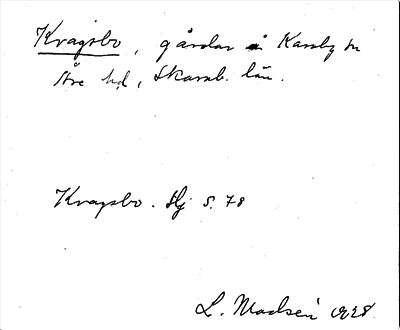 Kragsbo, gårdar å Karaby sn
Åse hd, Skarab. län.
Kragsbo. Hj S. 78
L. Madsen 1928